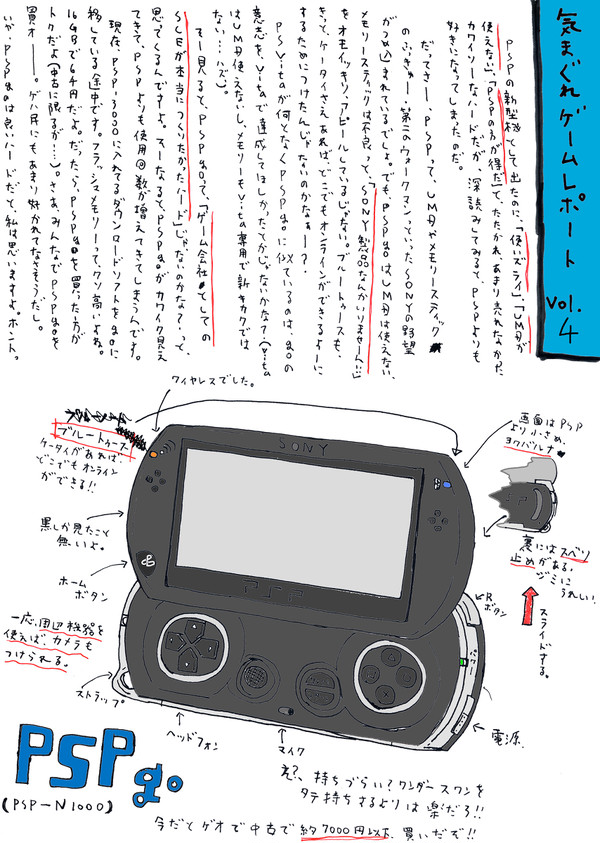 気まぐれゲームレポート vol.4
PSPの新型機として出たのに、「使いズライ」、「UMDが
使えない」、「PSPの方が得だ」と、たたかれ、あまり売れなかった
カワイソーなハードだが、深読みしてみると、PSPよりも
好きになってしまったのだ。
だってさー、PSPって、UMDやメモリースティック
のふきゅー、第三のウォークマン、っていったSONYの野望
がつめ込まれているでしょ。でもPSPgoはUMDは使えない、
メモリースティックは不良って、「SONY製品なんかいりません!!」
をオモイッキリ、アピールしているじゃない。ブルートゥースも、
きって、ケータイさえあれば、どこでもオンラインができるよーに
するためにつけたんじゃないのかなぁー?
PSVitaが何となくPSPgoに似ているのは、goの
意志を、Vitaで達成してほしかったてかんじゃないかな?(Vita
はUMD使えないし、メモリーもVita専用で新キカクでは
ない…ハズ)。
そー見ると、PSPgoって、「ゲーム会社としての
SCEが本当につくりたかったハード」じゃないのかな?っと、
思ってくるんですよ。そーなると、PSPgoがカワイク見え
てきて、PSPよりも使用回数が増えてきてしまうんです。
現在、PSP-3000に入れてるダウンロードソフトをgoに
移している途中です。フラッシュメモリーってクソ高いよね。
16GBで6千円だよ。だったら、PSPgoを買った方が
トクだよ(中古に限るが…)。さあ、みんなでPSPgoを
買オー。ゲハ民にもあまり好かれてなさそうだし。
いや、PSPgoは良いハードだと、私は思いますよ。ホント。
ワイヤレスでした。
ブルートゥース
ケータイがあれば、
どこでもオンライン
ができる!!
画面はPSP
より小さめ。
ヨクバルナ
SONY
黒しか見たこと
無いよ。
裏にはスベリ
止めがある。
ジミに
うれしい!
ホーム
ボタン
PSP
R
ボタン
スライドする。
一応、周辺機器を
使えば、カメラも
つけられる。
ストラップ
ヘッドフォン
マイク
電源
PSPgo
(PSP-N1000)
え?、持ちづらい?ワンダースワンを
タテ持ちするよりは楽だろ!!
今だとゲオで中古で約7000円以下。買いだぞ!!